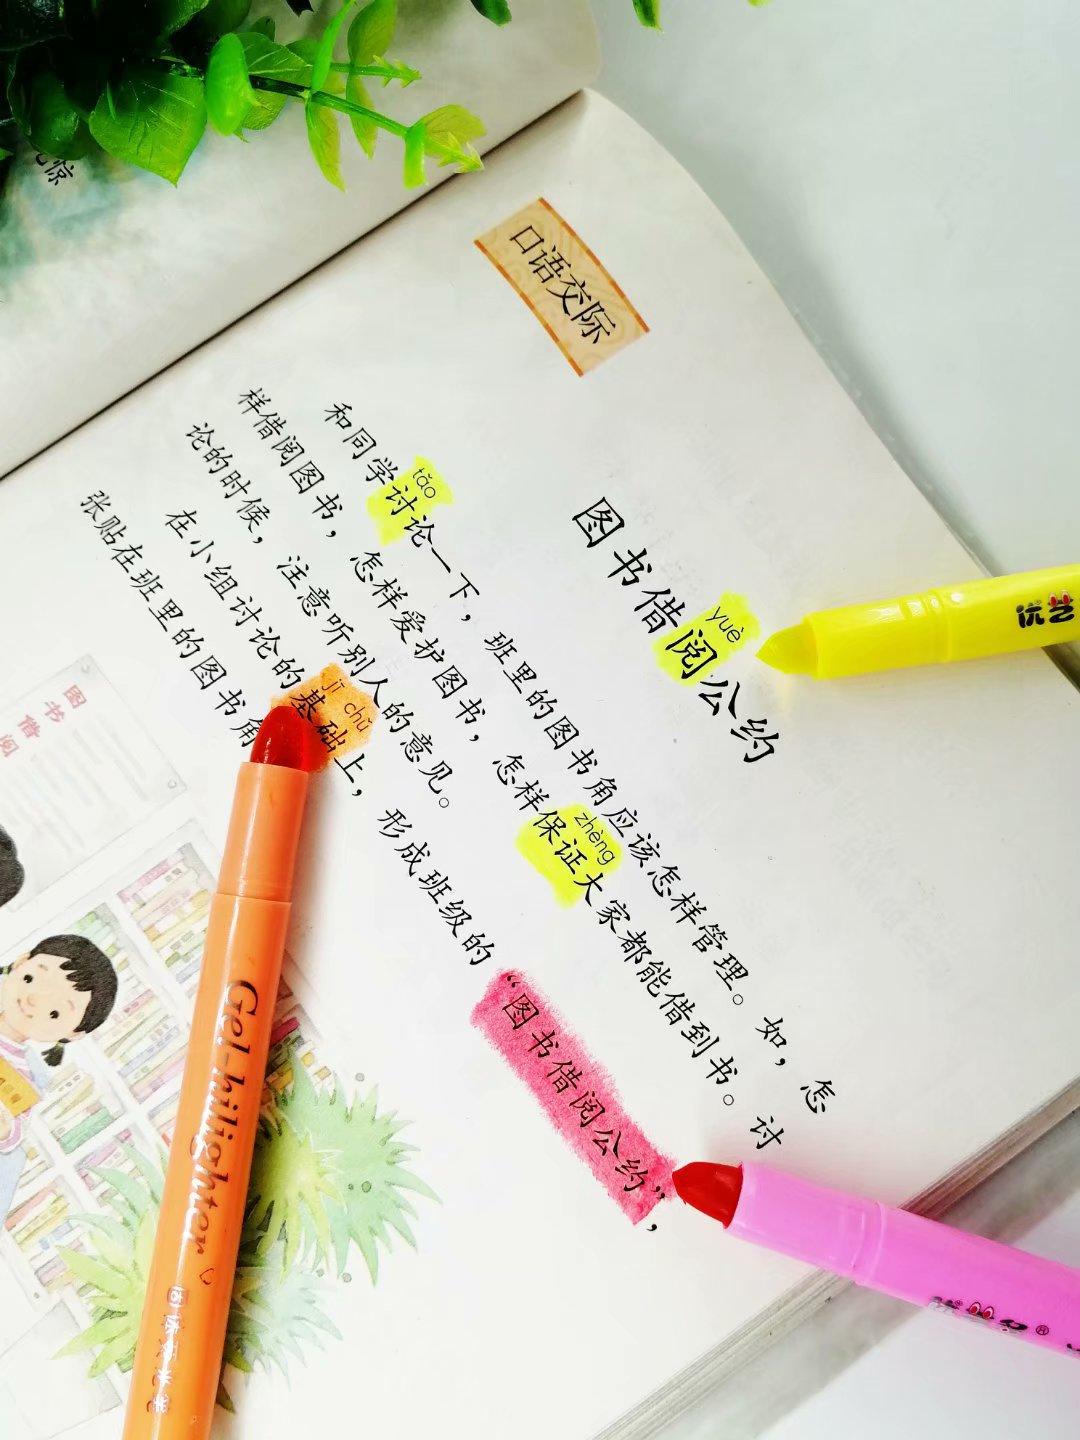 口语交际
图书借阅公约
yuè
和同学讨论一下，班里的图书角应该怎样管理。如，怎
tǎo
样借阅图书，怎样爱护图书，怎样保证大家都能借到书。讨
zhèng
论的时候，注意听别人的意见。
在小组讨论的基础上，形成班级的“图书借阅公约”，
jī chǔ
张贴在班里的图书角
图书借阅
Gel-hilighter
惊